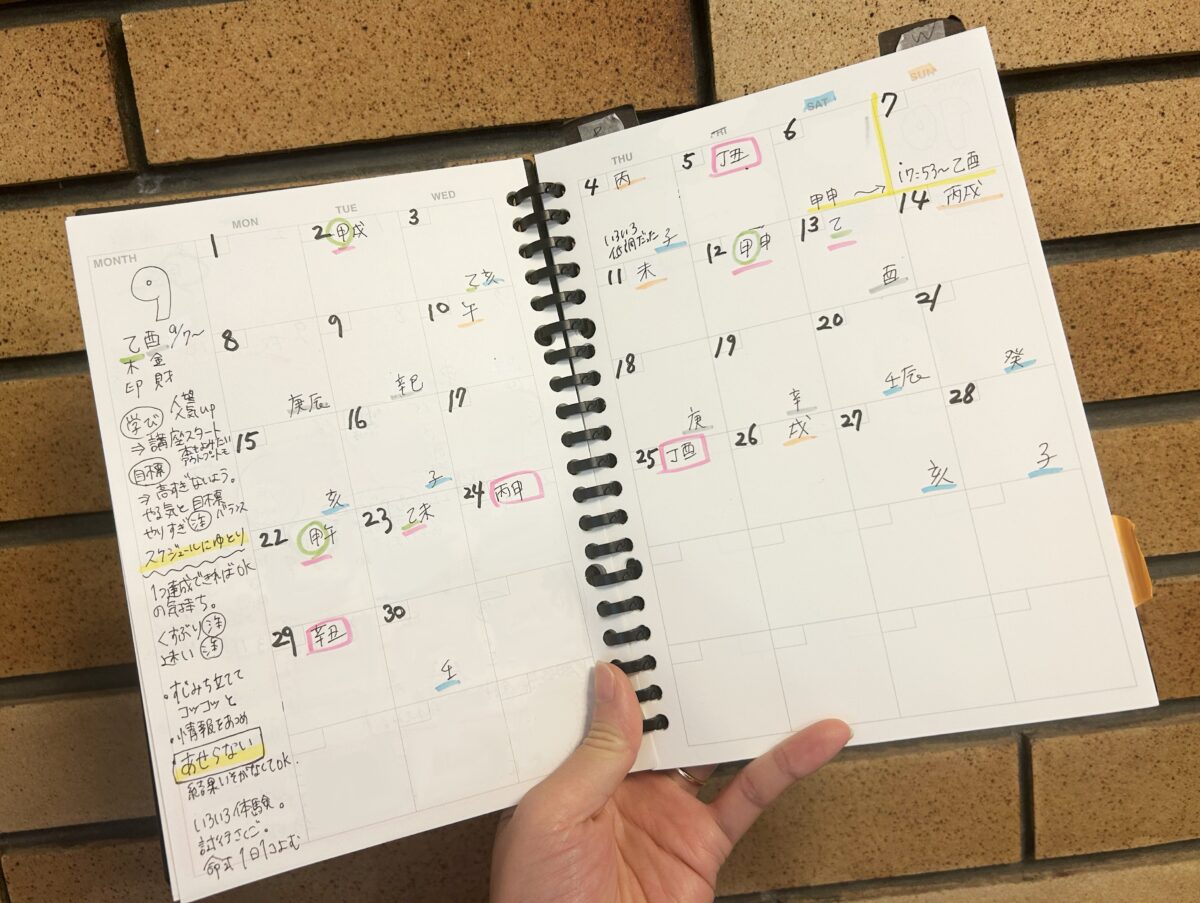 MONTH
MON
TUE
WED
9
乙酉 9/7〜
木 金
印 財
人望
人気up
学び
⇒講座スタート
本もよみたい
アウトプットも
目標
⇒高すぎないよう。
やる気と目標
バランス
やりすぎ注
スケジュールにゆとり
1つ達成できればOK
の気持ち。
くすぶり注
迷い注
・すじみち立てて
コツコツと
・情報をあつめ
・あせらない
結果いそがなくてOK.
いろいろ体験。
試行さくご。
命式1日1コよむ
1
2 甲戌
3
乙亥
8
庚辰
9
辛巳
10 午
15
亥
16
子
17
22 甲午
23 乙未
24 丙申
29 辛丑
30
壬
THU
FRI
SAT
SUN
4 丙
いろいろ
低調だった 子
5 丁丑
6
甲申 〜→
7
17:53〜乙酉
11 未
12 甲申
13 乙
酉
14 丙戌
18
庚
19
辛
20
壬辰
21
癸
25 丁酉
26 戌
27
亥
28
子
W